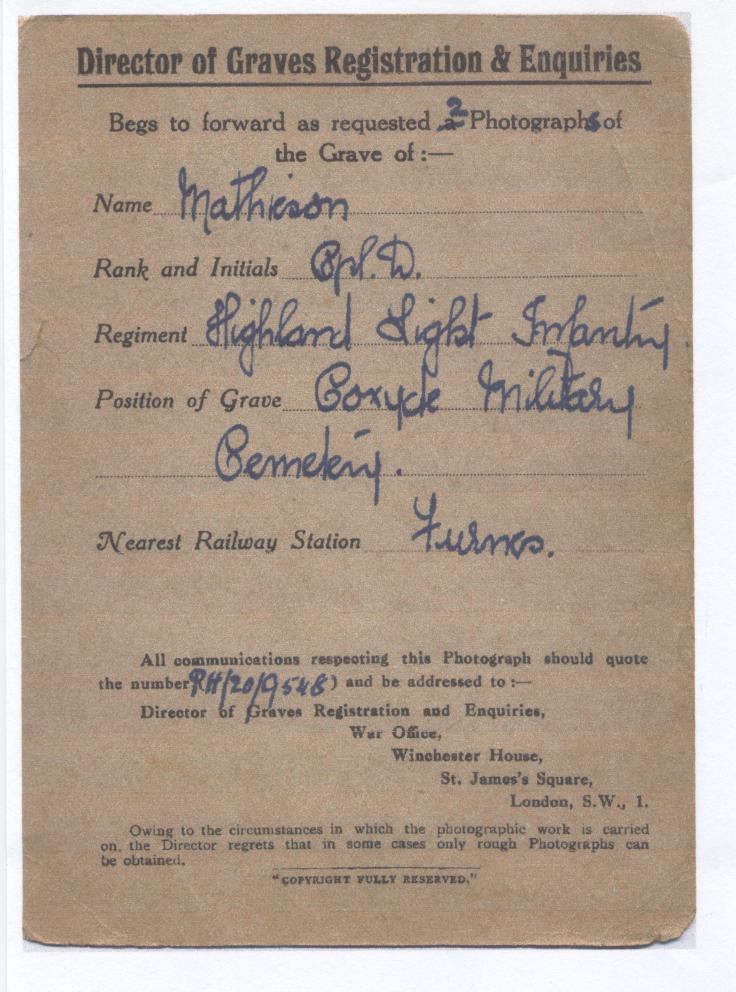 Director of Graves Registration & Enquiries
Begs to forward as requested 2 Photographs of
the Grave of :—
Name Mathieson
Rank and Initials Cpl. D.
Regiment Highland Light Infantry.
Position of Grave Coxyde Military
Cemetery.
Nearest Railway Station Furnes.
All communications respecting this Photograph should quote
the number RH/20/9548) and be addressed to :—
Director of Graves Registration and Enquiries,
War Office,
Winchester House,
St. James's Square,
London, S.W., 1.
Owing to the circumstances in which the photographic work is carried
on, the Director regrets that in some cases only rough Photographs can
be obtained.
"COPYRIGHT FULLY RESERVED."